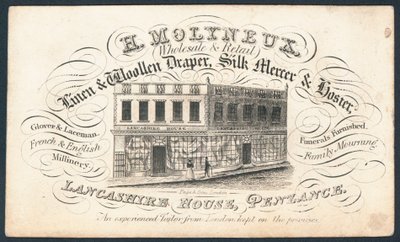 H. MOLYNEUX,
(Wholesale & Retail)
Linen & Woollen Draper, Silk Mercer & Hosier,
LANCASHIRE HOUSE
LANCASHIRE
Glover & Laceman.
French & English
Millinery.
Funerals Furnished.
Family Mourning.
LANCASHIRE HOUSE, PENZANCE.
An experienced Tailor from London kept on the premises